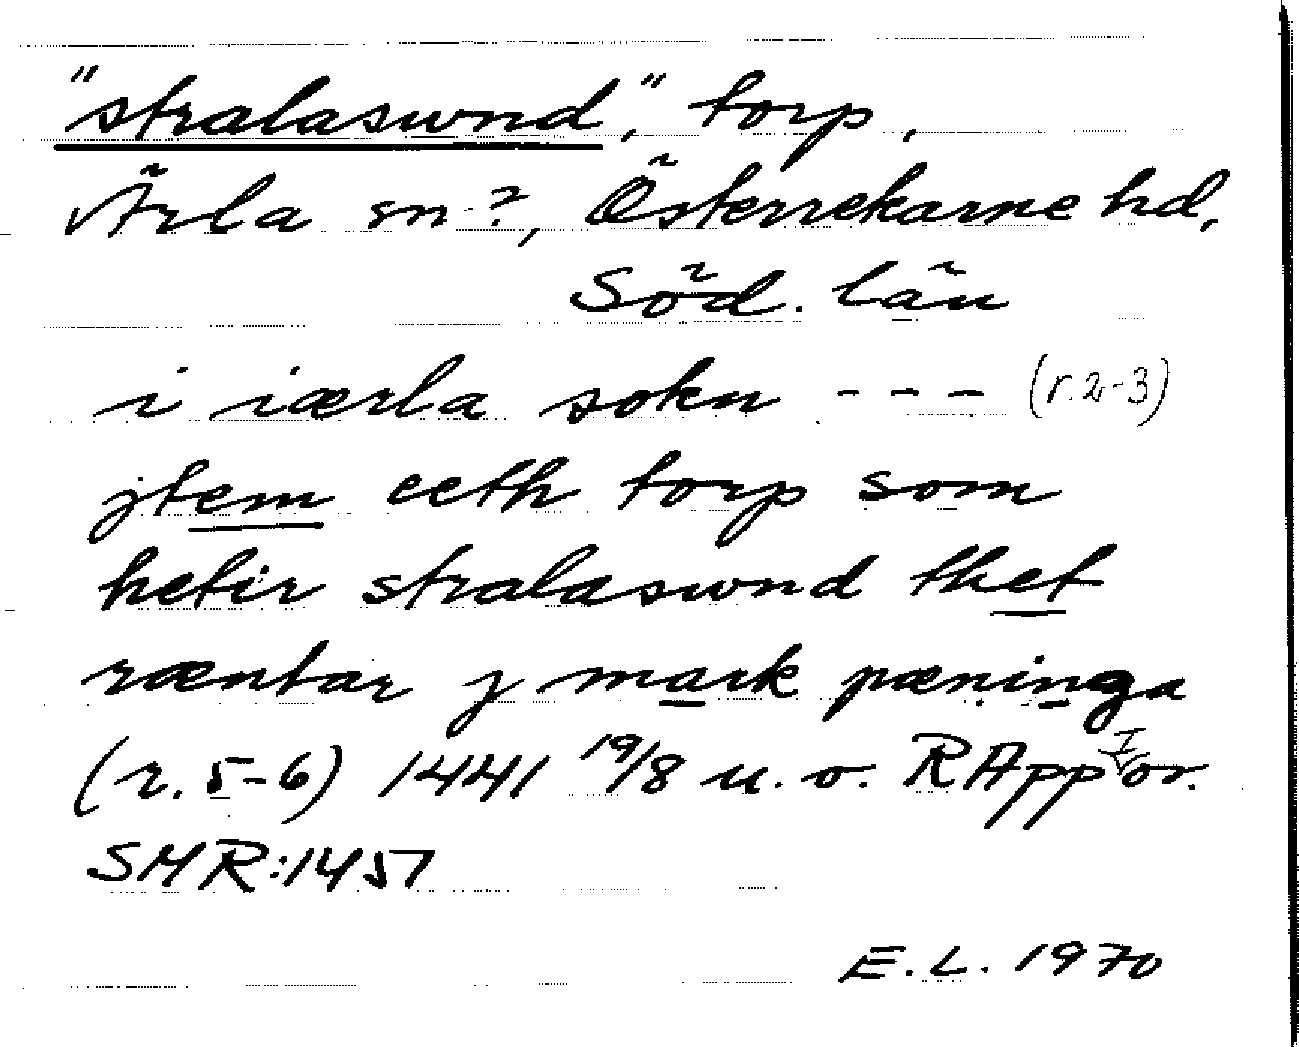 "stralaswnd", torp,
Ärla sn?, Österrekarne hd,
Söd. län
i iærla sokn --- (r. 2-3)
jtem eeth torp som
hetir stralaswnd thet
ræntar j mark pæninga
(r. 5-6) 1441 19/8 u. o. RApp I or.
SMR:1457
E.L. 1970